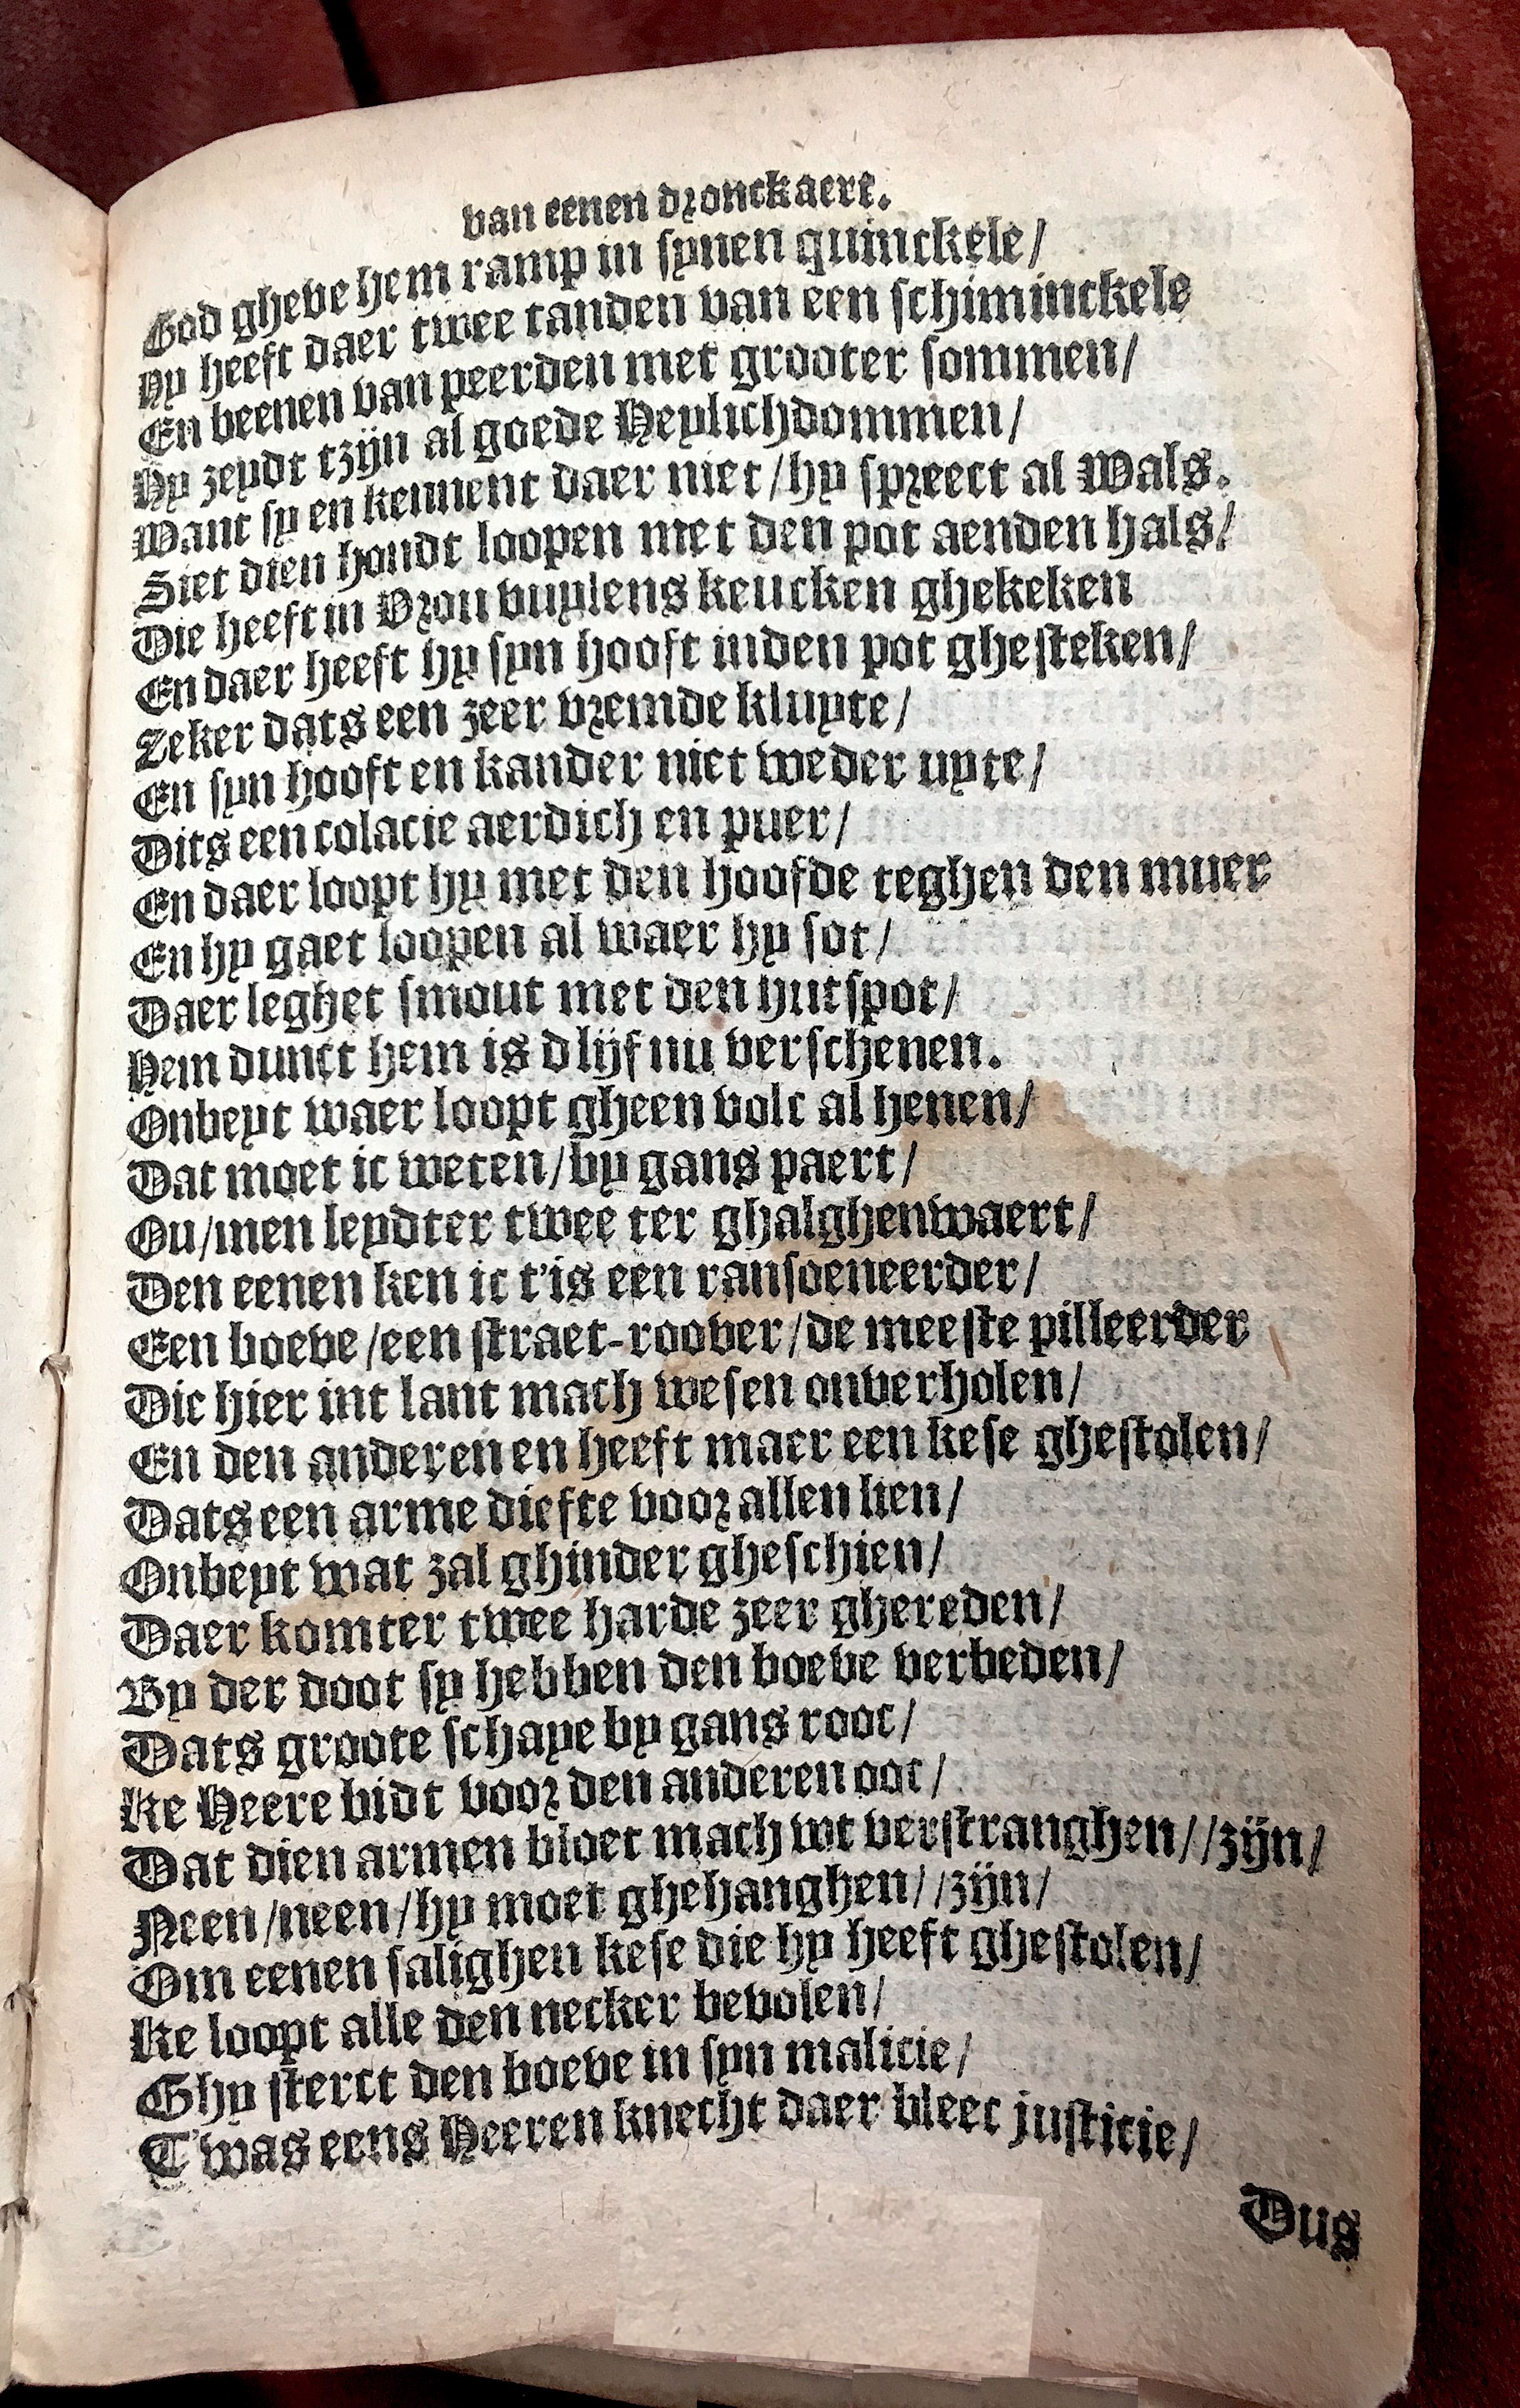 van eenen dronckaert.
God gheve hem ramp in synen quinckele/
Hy heeft daer twee tanden van een schiminckele
En beenen van peerden met grooter sommen/
Hy zeydt tzijn al goede Heylichdommen/
Want sy en kennent daer niet/hy spreect al Wals.
Siet dien hondt loopen met den pot aenden hals/
Die heeft in Vrou vuylens keucken ghekeken
En daer heeft hy syn hooft inden pot ghesteken/
Zeker dats een zeer vremde kluyte/
En syn hooft en kander niet weder uyte/
Dits een colacie aerdich en puer/
En daer loopt hy met den hoofde teghen den muer
En hy gaet loopen al waer hy sot/
Daer leghet smout met den hutspot/
Hem dunct hem is dlijf nu verschenen.
Onbeyt waer loopt gheen volc al henen/
Dat moet ic weten/by gans paert/
Ou/men leydter twee ter ghalghenwaert/
Den eenen ken ic t'is een ransoeneerder/
Een boeve/een straet-roover/de meeste pilleerder
Die hier int lant mach wesen onverholen/
En den anderen en heeft maer een kese ghestolen/
Dats een arme diefte voor allen lien/
Onbeyt wat zal ghinder gheschien/
Daer komter twee harde zeer ghereden/
By der doot sy hebben den boeve verbeden/
Dats groote schaye by gans rooc/
Ke Heere bidt voor den anderen ooc/
Dat dien armen bloet mach wt verstranghen//zijn/
Neen/neen/hy moet ghehanghen//zijn/
Om eenen salighen kese die hy heeft ghestolen/
Ke loopt alle den necker bevolen/
Ghy sterct den boeve in syn malicie/
T'was eens Heeren knecht daer bleec justicie/
Dus